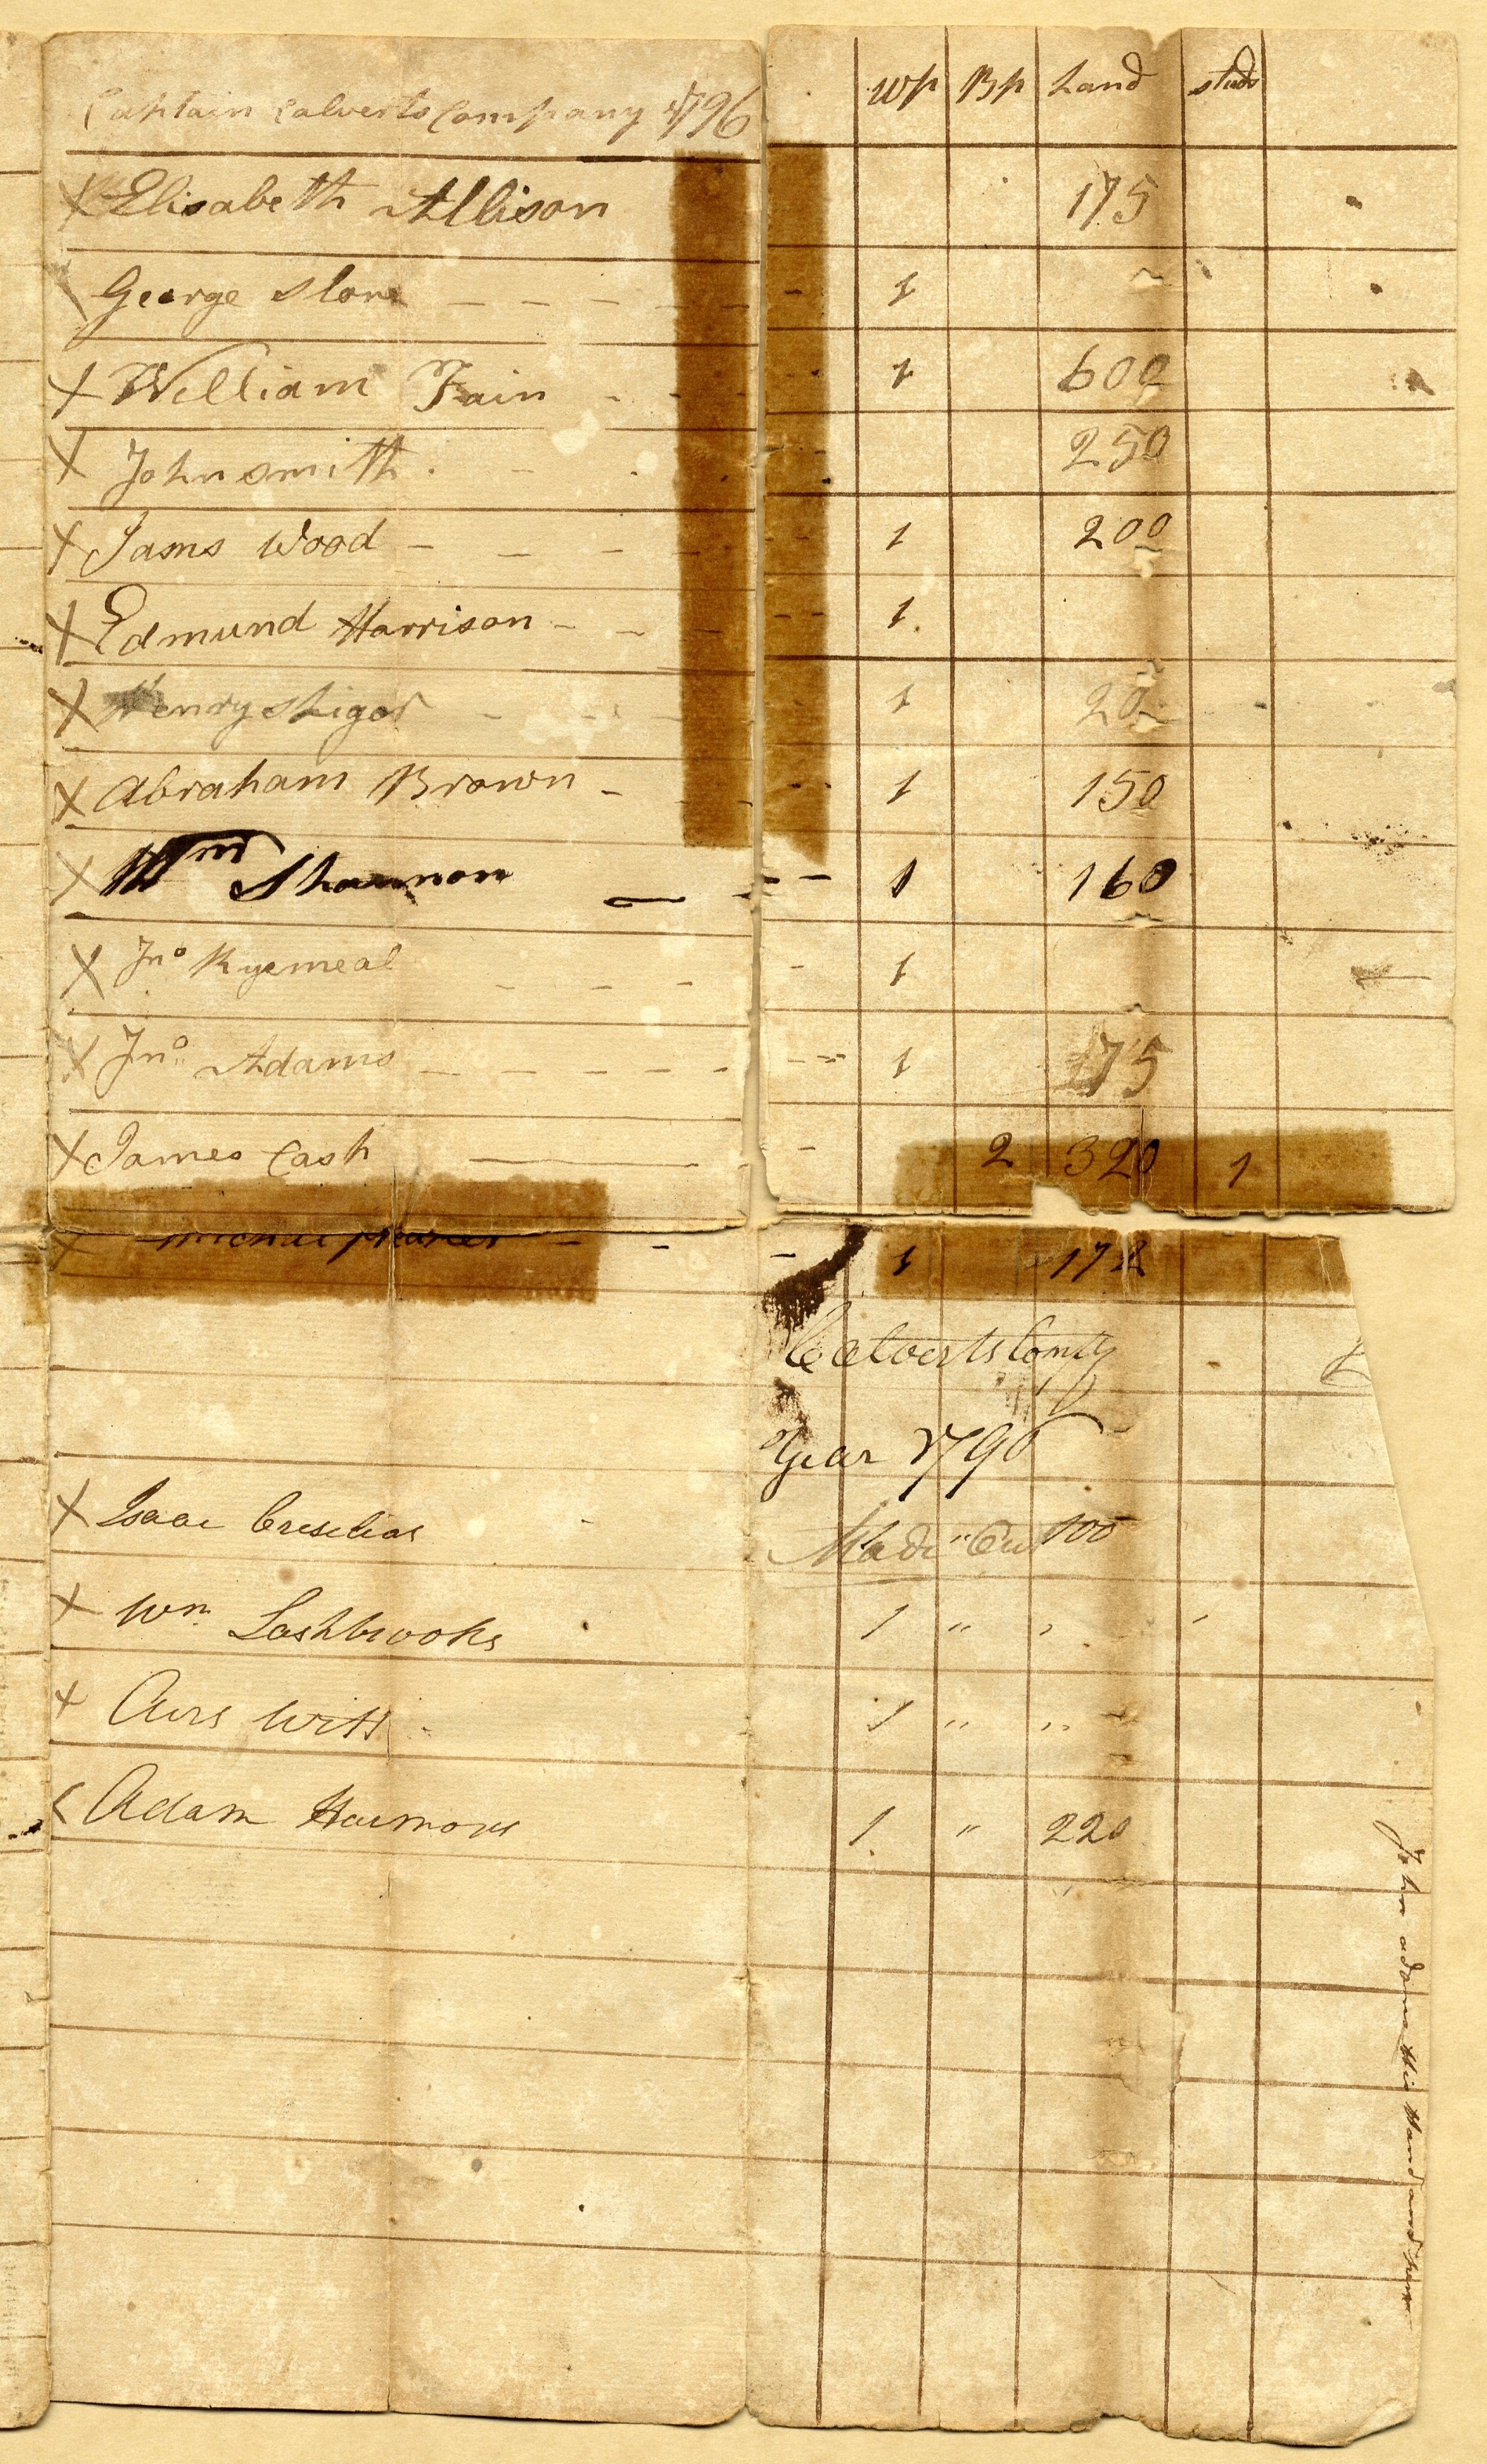 Captain Calverts Company 1796 Wp Bp Land studs
X Elisabeth Allison 175
George Slone 1
X William Fain 1 600
X John smith 250
X Jams Wood 1 200
X Edmund Harrison 1
X Henry 1 20
X Abraham Brown 1 150
X Wm Shannon 1 160
X Jno Ryemeal 1
X Jno Adams 1 75
X James Cash 2 320 1
X 1 172
Calverts Comy
Year 1796
X Isaac 100
Made Out
X Wm Lashbrooks 1 " "
X Avrs Witt 1 " "
Adam Harmons 1 " 220
John adams His Hand and pen